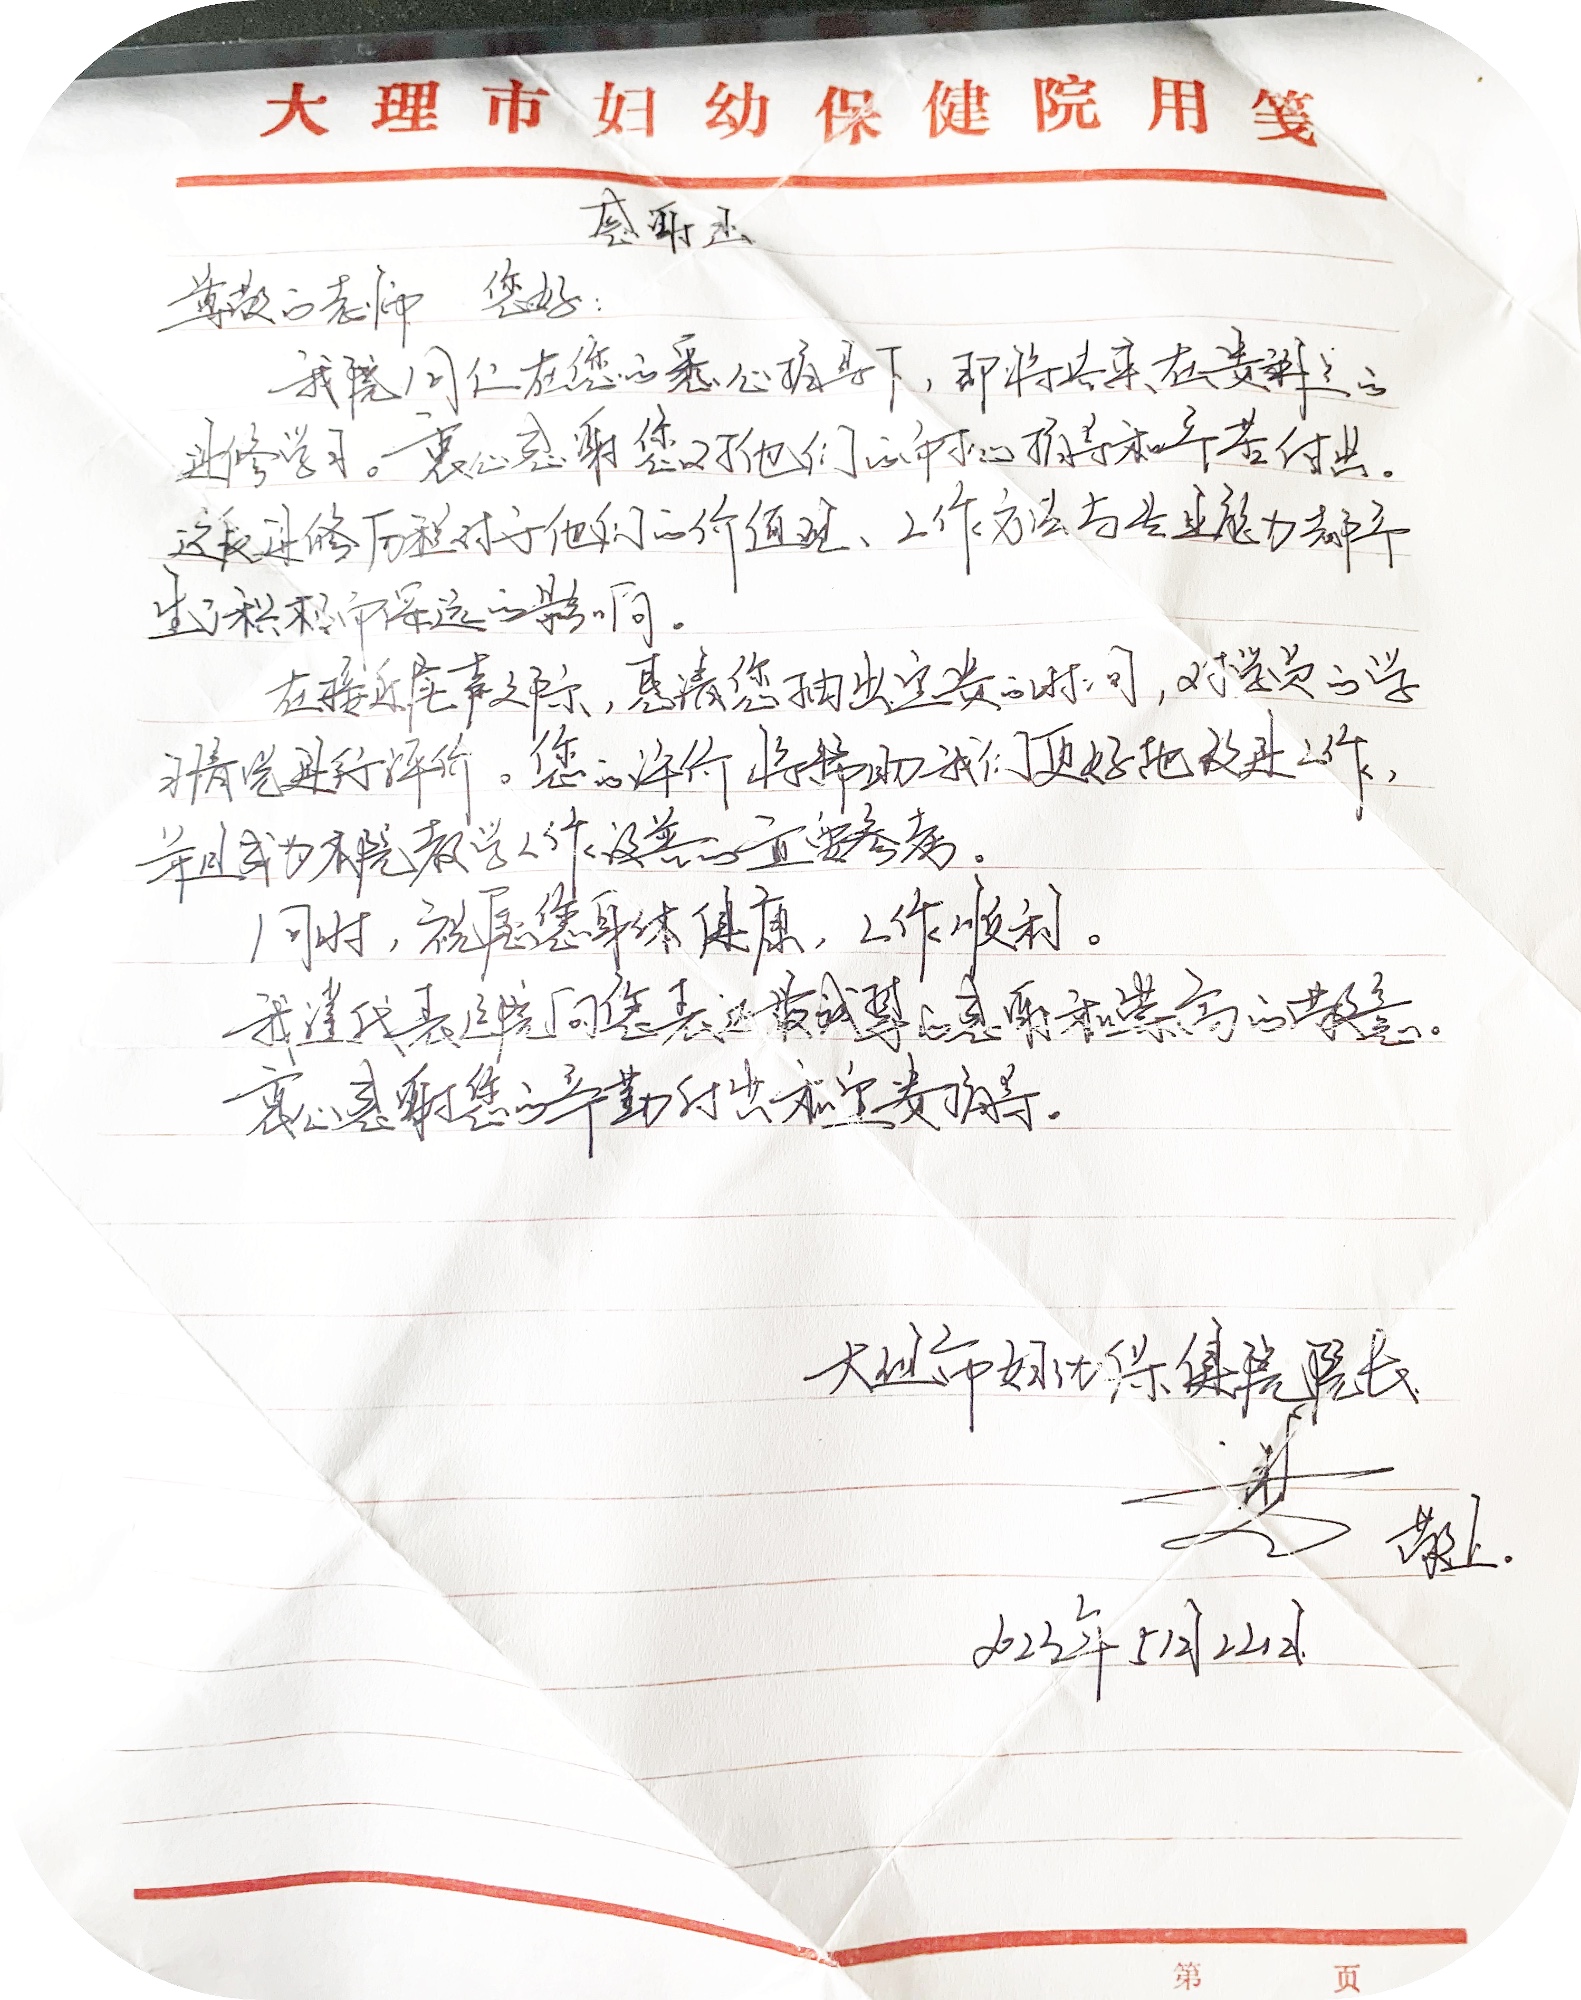 大理市妇幼保健院用笺
感谢函
尊敬的老师 您好：
我院同仁在您的悉心指导下，即将结束在贵科的
进修学习。衷心感谢您对他们的耐心指导和辛苦付出。
这段进修历程对于他们的价值观、工作方法与专业能力都产
生了积极而深远的影响。
在接近尾声之际，恳请您抽出宝贵的时间，对学员的学
习情况进行评价。您的评价将帮助我们更好地改进工作，
并且成为本院教学工作改善的重要参考。
同时，祝愿您身体健康，工作顺利。
我谨代表医院向您表达最诚挚的感谢和崇高的敬意。
衷心感谢您的辛勤付出和宝贵指导。
大理市妇幼保健院院长
敬上.
2023年5月22日
第 页